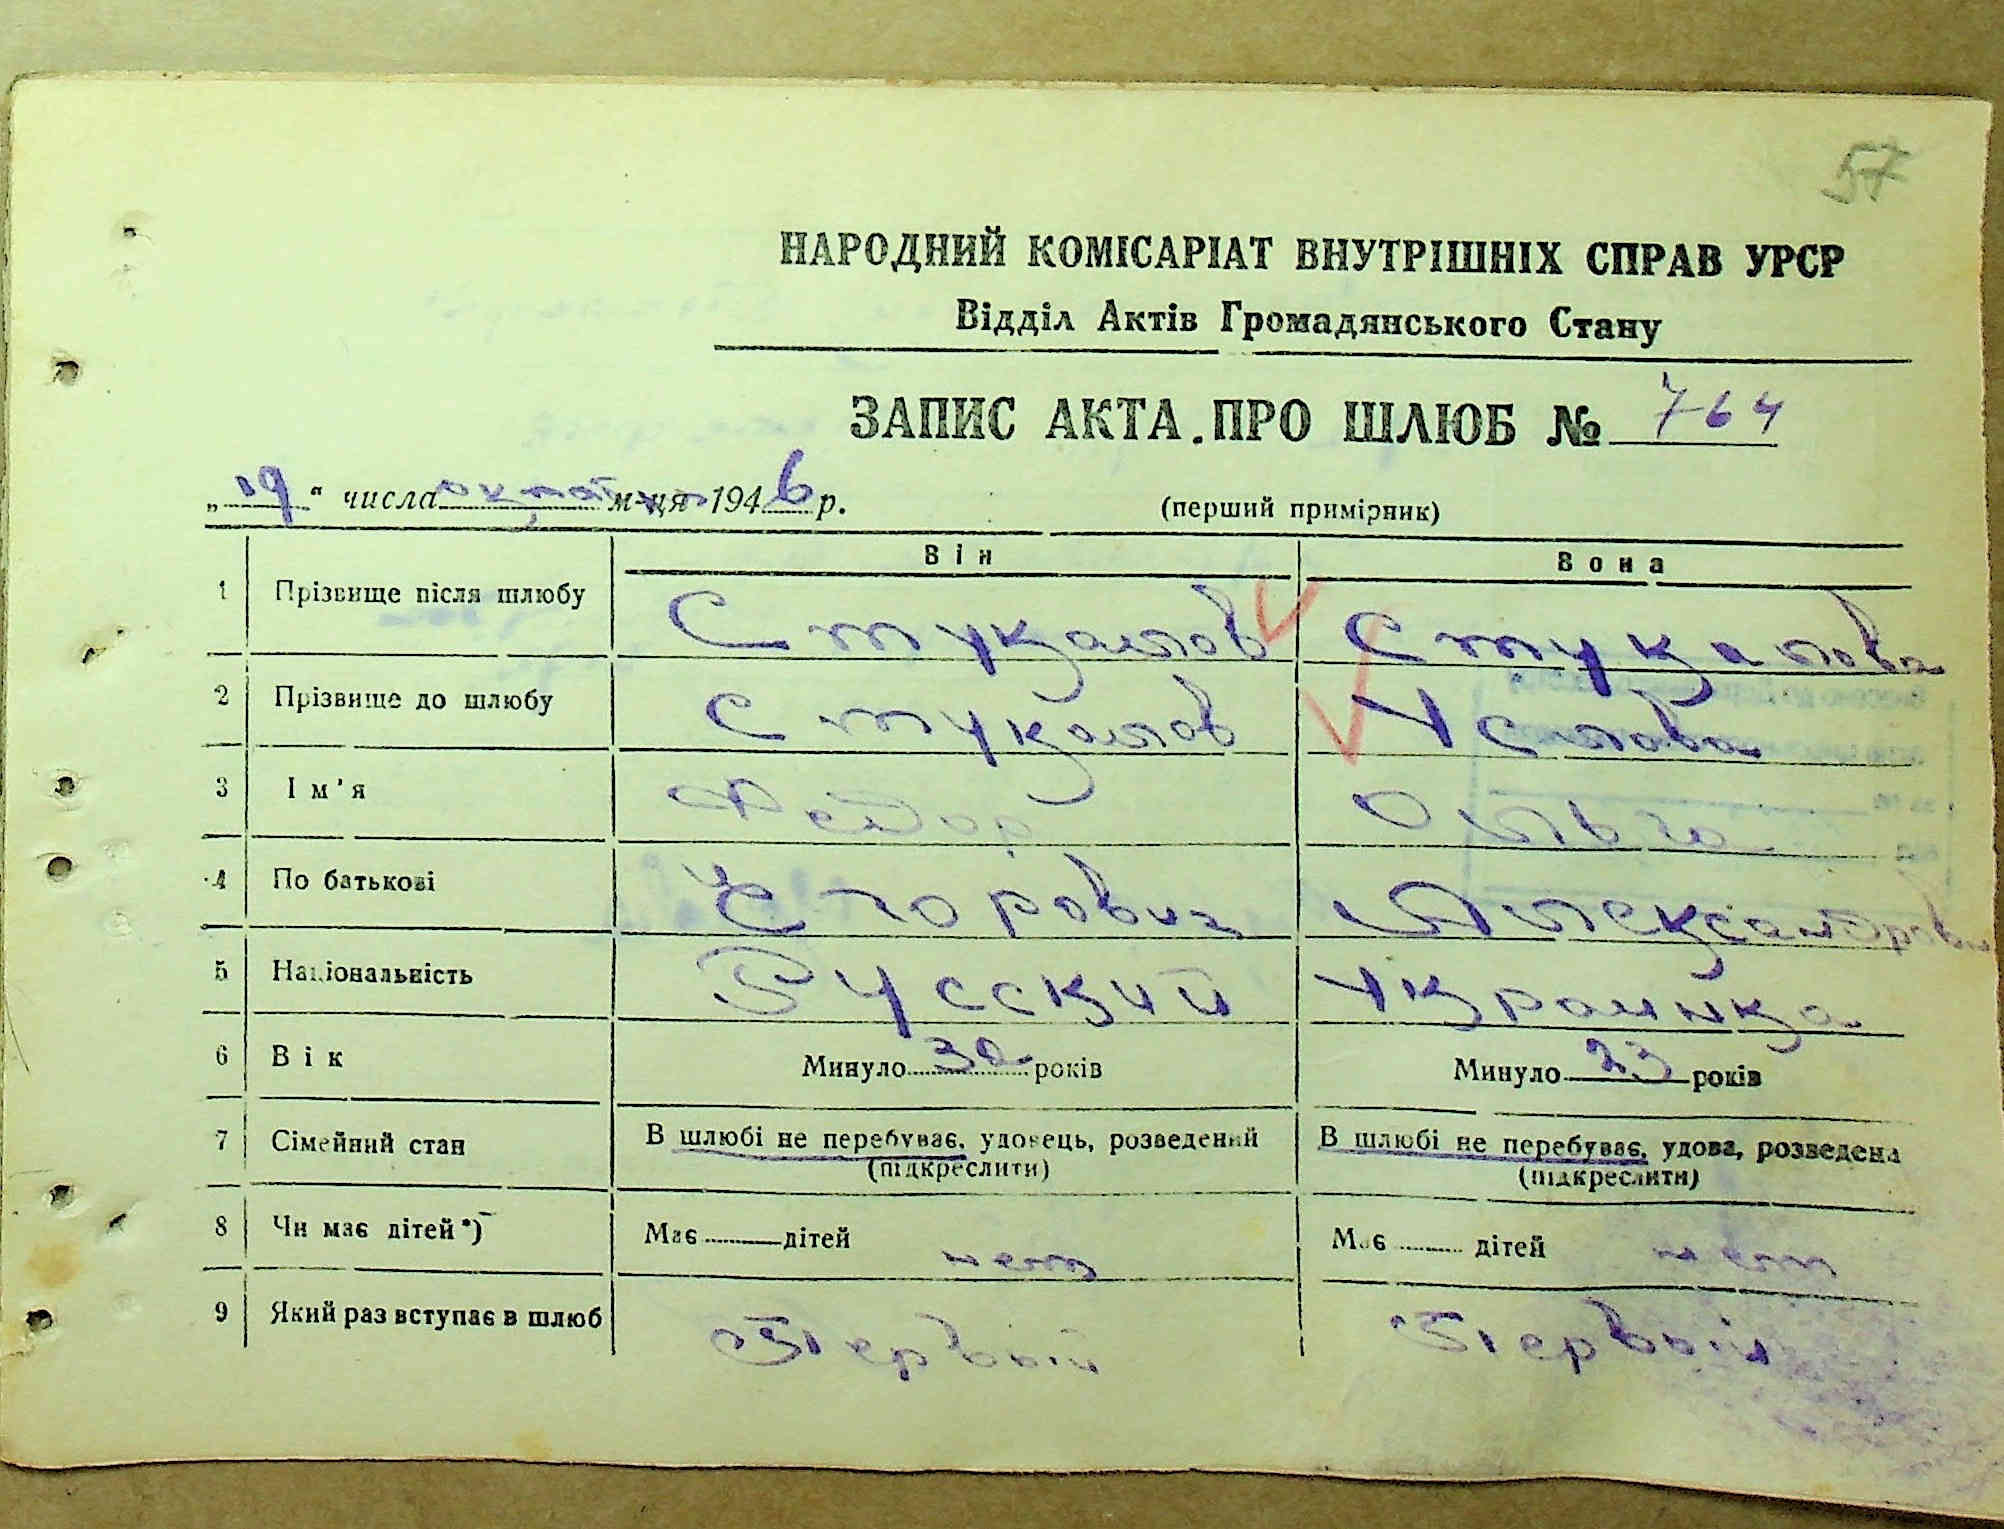 57
НАРОДНИЙ КОМІСАРІАТ ВНУТРІШНІХ СПРАВ УРСР
Відділ Актів Громадянського Стану
ЗАПИС АКТА ПРО ШЛЮБ № 764
„19“ числа октября м-ця 1946 р. (перший примірник)
Він Вона
1 Прізвище після шлюбу Стукалов Стукалова
2 Прізвище до шлюбу Стукалов Услова
3 Ім'я Федор Ольга
4 По батькові Егорович Александровна
5 Національність Русский Украинка
6 Вік Минуло 30 років Минуло 23 років
7 Сімейний стан В шлюбі не перебуває, удовець, розведений В шлюбі не перебуває, удова, розведена
(підкреслити) (підкреслити)
8 Чи має дітей*) Має дітей нет Має дітей нет
9 Який раз вступає в шлюб Первый Первый